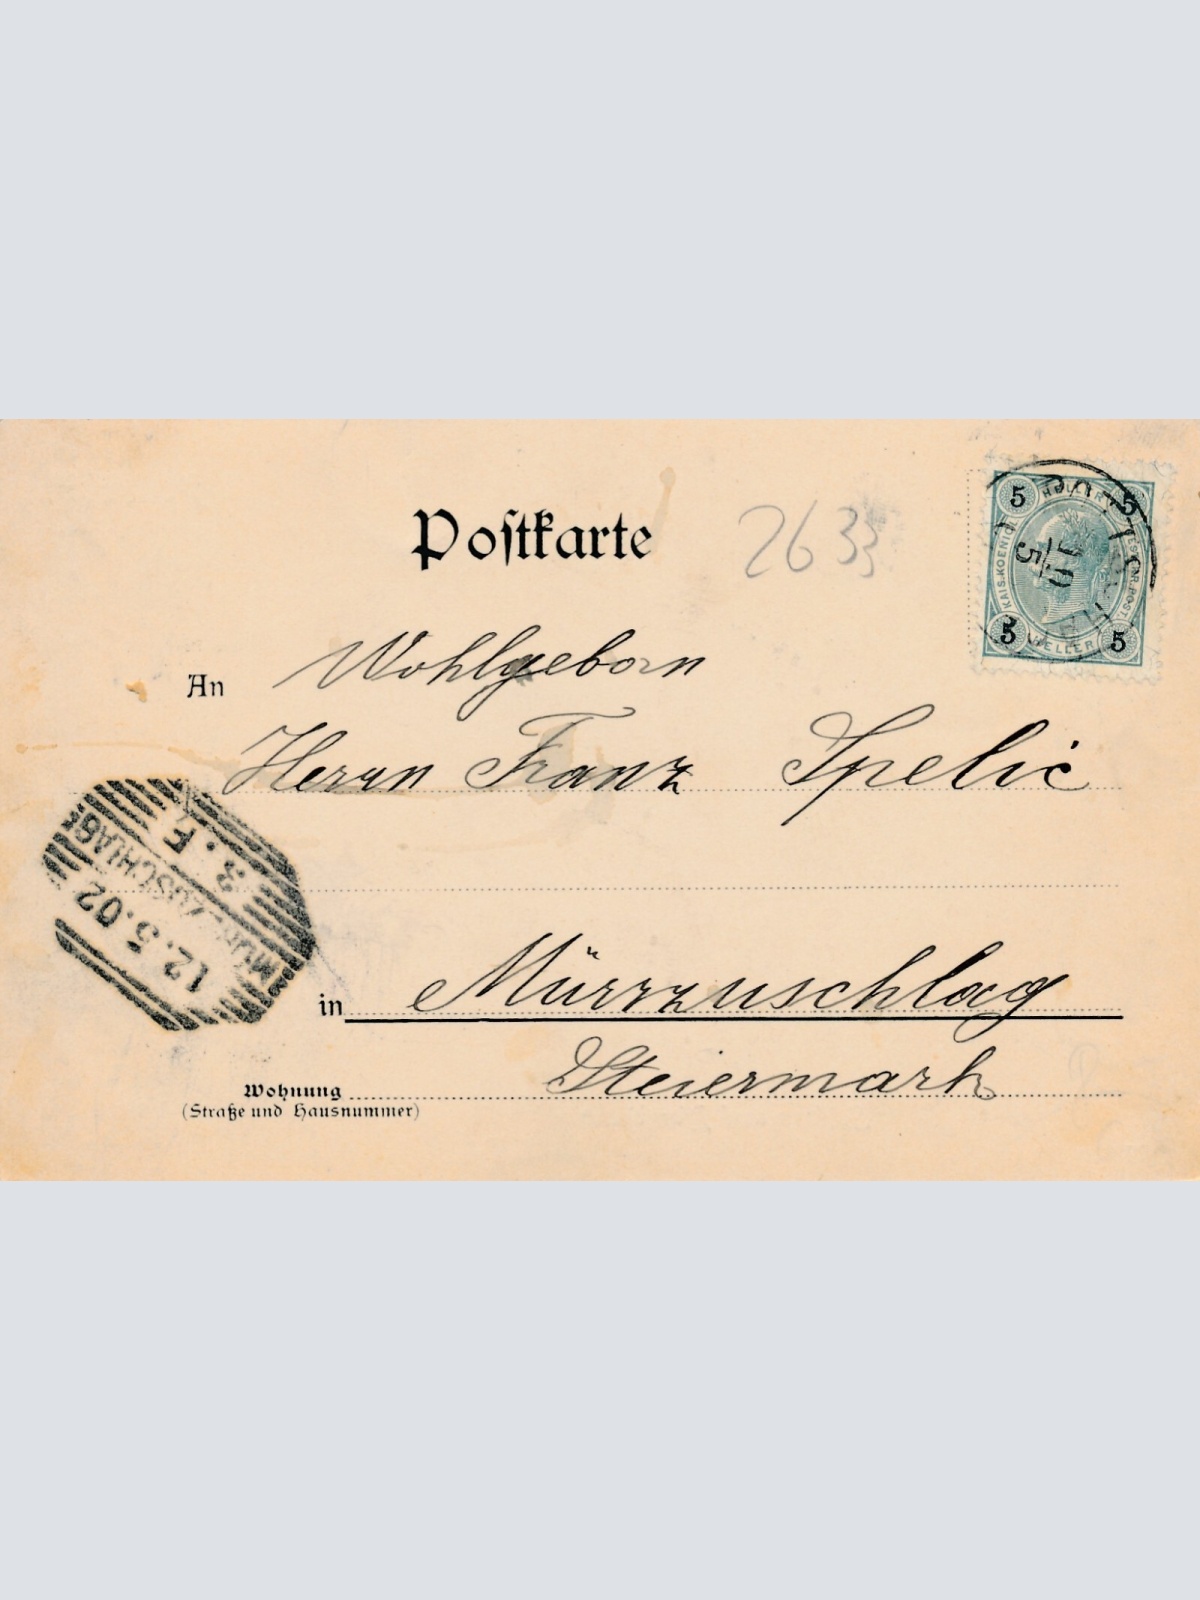 Postkarte
2633
5 HELLER 5
KAIS. KOENIGL. OESTERR. POST
5 HELLER 5
10
5
An Wohlgeborn
Herrn Franz Spelic
MÜRZZUSCHLAG
3. F
12.5.02
in Mürrzuschlag
Steiermark
Wohnung
(Straße und Hausnummer)